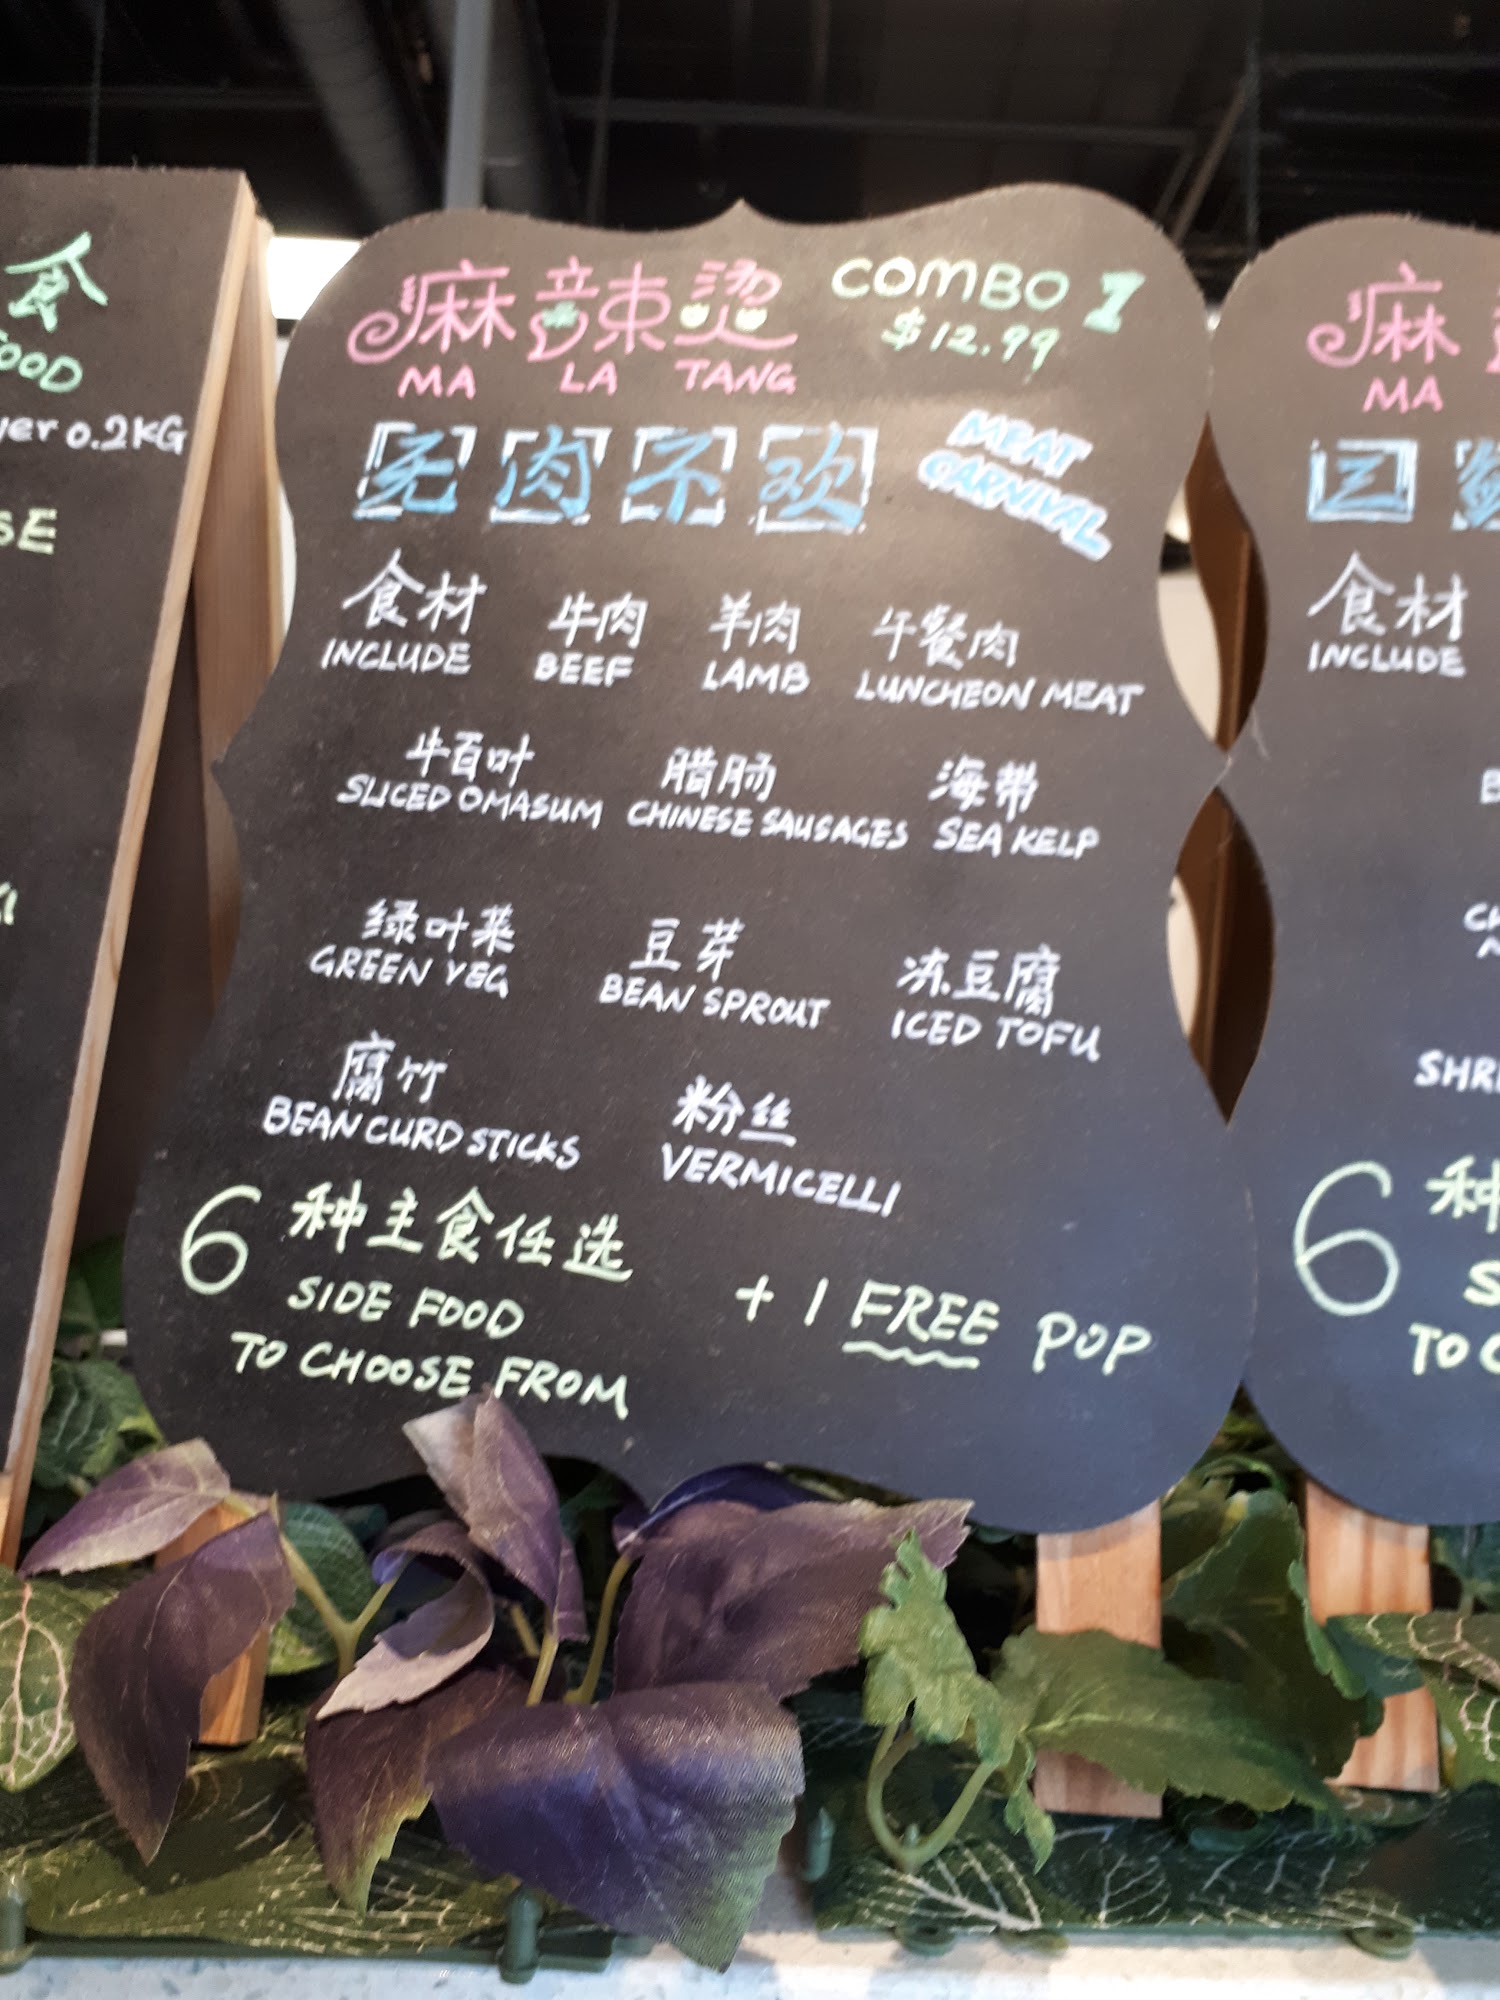 食
FOOD
0.2KG
麻辣烫 COMBO 1
MA LA TANG $12.99
无肉不欢 MEAT
CARNIVAL
食材 牛肉 羊肉 午餐肉
INCLUDE BEEF LAMB LUNCHEON MEAT
牛百叶 腊肠 海带
SLICED OMASUM CHINESE SAUSAGES SEA KELP
绿叶菜 豆芽 冻豆腐
GREEN VEG BEAN SPROUT ICED TOFU
腐竹 粉丝
BEAN CURD STICKS VERMICELLI
6 种主食任选
SIDE FOOD + 1 FREE POP
TO CHOOSE FROM
麻
MA
食材
INCLUDE
6 种
TO